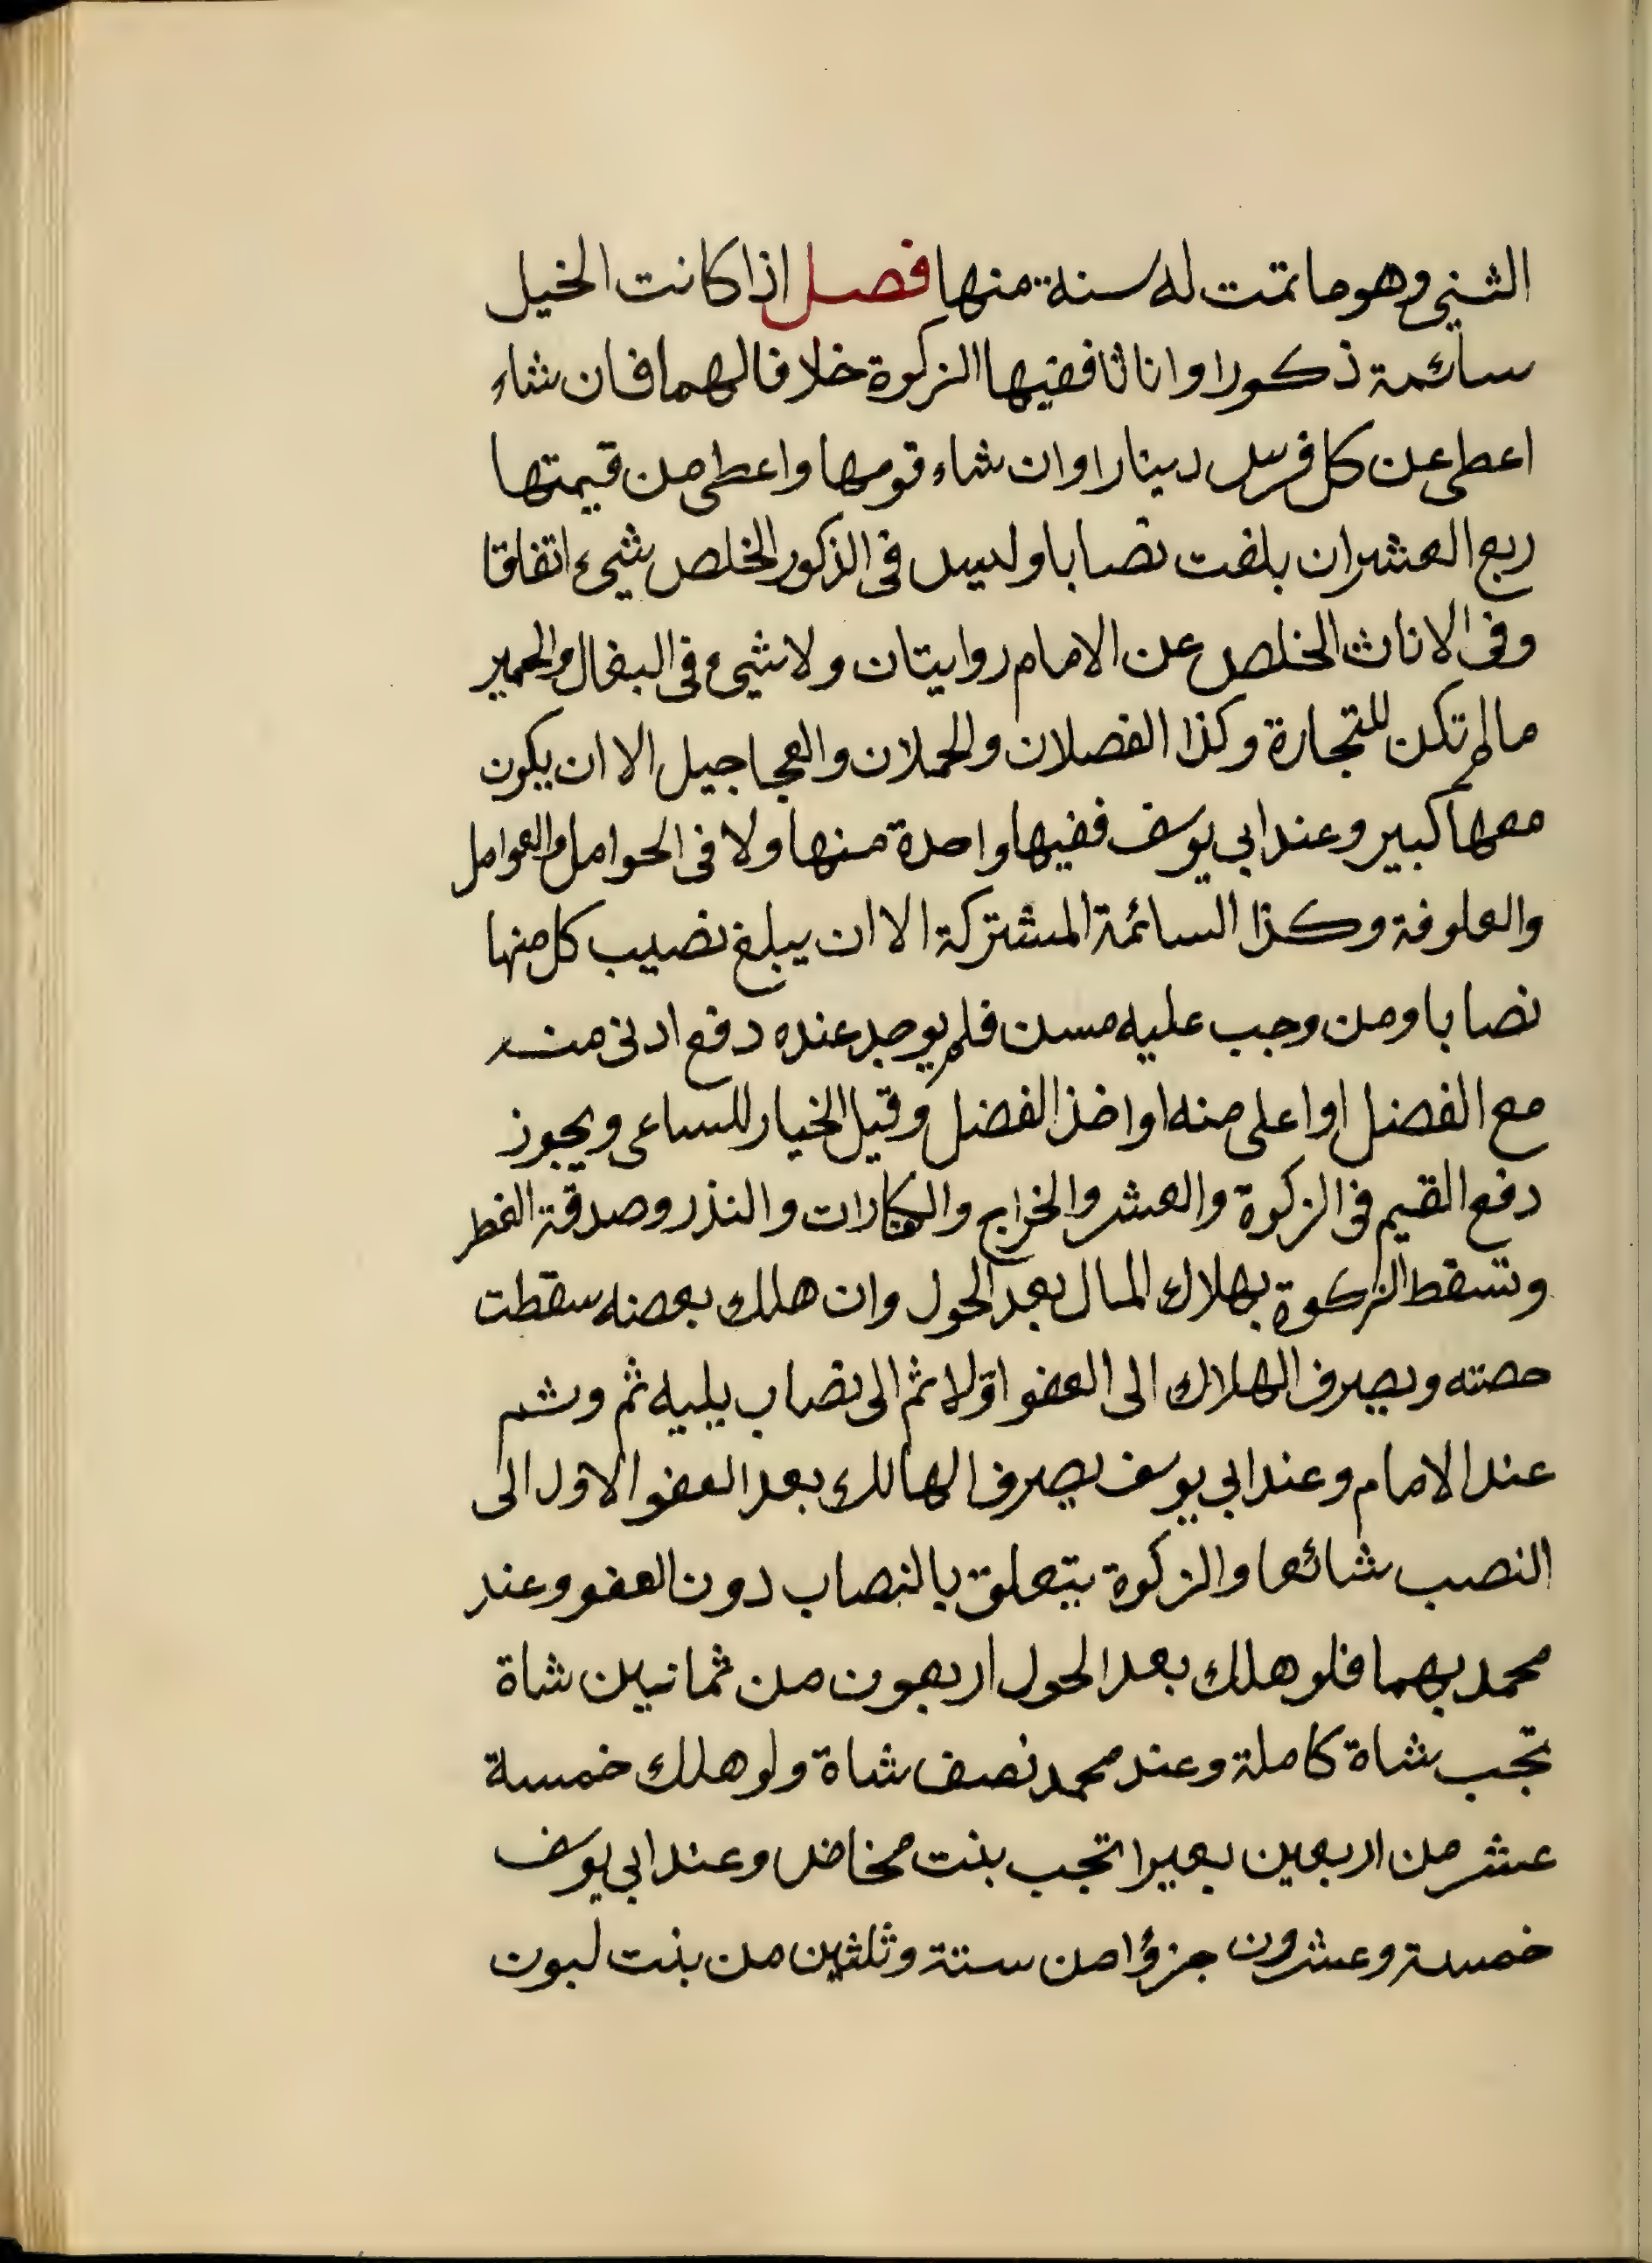 الثني وهو ما تمت له سنة منها فصل اذا كانت الخيل
سائمة ذكورا واناثا ففيها الزكوة خلافا لهما فان شاء
اعطى عن كل فرس دينارا وان شاء قومها واعطى من قيمتها
ربع العشر ان بلغت نصابا وليس فى الذكور الخلص شيء اتفاقا
وفى الاناث الخلص عن الامام روايتان ولا شيء فى البغال والحمير
ما لم تكن للتجارة وكذا الفصلان والحملان والعجاجيل الا ان يكون
معها كبير وعند ابي يوسف ففيها واحدة منها ولا فى الحوامل والعوامل
والعلوفة وكذا السائمة المشتركة الا ان يبلغ نصيب كل منها
نصابا ومن وجب عليه مسن فلم يوجد عنده دفع ادنى منه
مع الفضل او اعلى منه او اخذ الفضل وقيل الخيار للساعى ويجوز
دفع القيم فى الزكوة والعشر والخراج والكفارات والنذر وصدقة الفطر
وتسقط الزكوة بهلاك المال بعد الحول وان هلك بعضه سقطت
حصته ويصرف الهلاك الى العفو اوّلا ثم الى نصاب يليه ثم وثم
عند الامام وعند ابي يوسف يصرف الهالك بعد العفو الاول الى
النصب شائعا والزكوة يتعلق بالنصاب دون العفو وعند
محمد بهما فلو هلك بعد الحول اربعون من ثمانين شاة
تجب شاة كاملة وعند محمد نصف شاة ولو هلك خمسة
عشر من اربعين بعيرا تجب بنت مخاض وعند ابي يوسف
خمسة وعشرون جزؤا من ستة وثلثين من بنت لبون